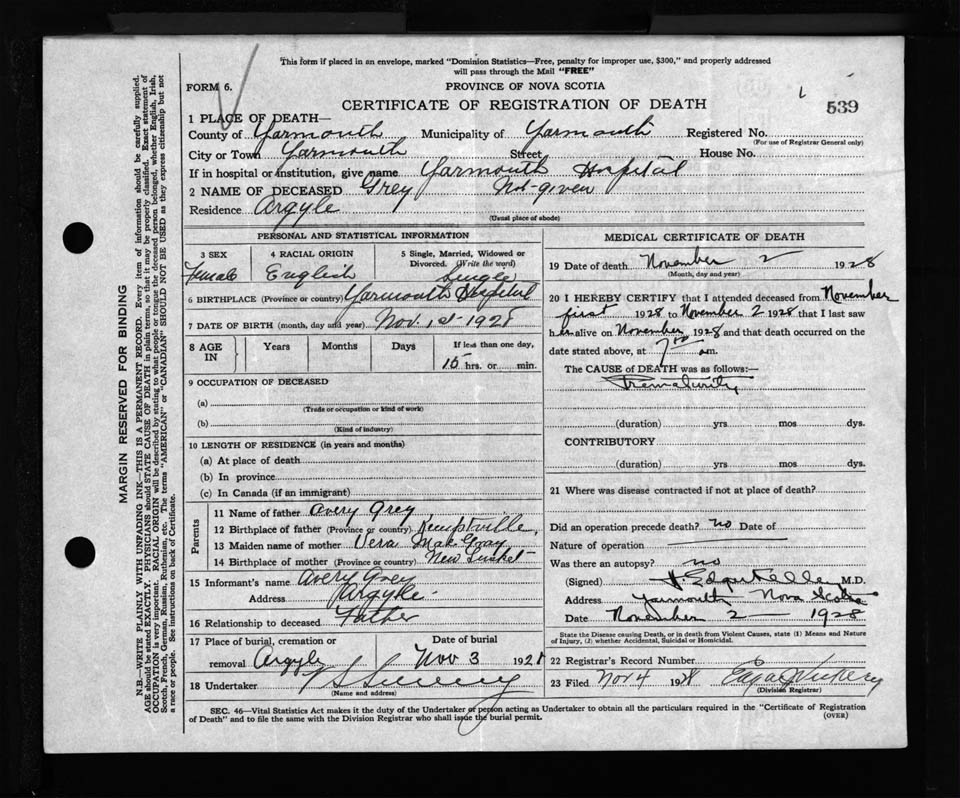 This form if placed in an envelope, marked "Dominion Statistics—Free, penalty for improper use, $300," and properly addressed
will pass through the Mail "FREE"
FORM 6.
PROVINCE OF NOVA SCOTIA
CERTIFICATE OF REGISTRATION OF DEATH
539
1 PLACE OF DEATH—
County of Yarmouth Municipality of Yarmouth Registered No.
(For use of Registrar General only)
City or Town Yarmouth Street House No.
If in hospital or institution, give name Yarmouth Hospital
2 NAME OF DECEASED Grey Not-given
Residence Argyle
(Usual place of abode)
PERSONAL AND STATISTICAL INFORMATION
3 SEX 4 RACIAL ORIGIN 5 Single, Married, Widowed or Divorced. (Write the word)
Female English Single
6 BIRTHPLACE (Province or country) Yarmouth Hospital
7 DATE OF BIRTH (month, day and year) Nov. 1st-1928
8 AGE IN Years Months Days If less than one day,
15 hrs. or min.
9 OCCUPATION OF DECEASED
(a)
(Trade or occupation or kind of work)
(b)
(Kind of industry)
10 LENGTH OF RESIDENCE (in years and months)
(a) At place of death
(b) In province
(c) In Canada (if an immigrant)
Parents
11 Name of father Avery Grey
12 Birthplace of father (Province or country) Kemptville,
13 Maiden name of mother Vera
14 Birthplace of mother (Province or country) New Tusket
15 Informant's name Avery Grey
Address Argyle-
16 Relationship to deceased Father
17 Place of burial, cremation or Date of burial
removal Argyle Nov 3 1928
18 Undertaker
(Name and address)
MEDICAL CERTIFICATE OF DEATH
19 Date of death November 2 1928
(Month, day and year)
20 I HEREBY CERTIFY that I attended deceased from November
first 1928 to November 2 1928 that I last saw
her alive on November 1928 and that death occurred on the
date stated above, at 7 00 am.
The CAUSE of DEATH was as follows:—
Prematurity
(duration) yrs mos dys.
CONTRIBUTORY
(duration) yrs mos dys.
21 Where was disease contracted if not at place of death?
Did an operation precede death? no Date of
Nature of operation
Was there an autopsy? no
(Signed) M.D.
Address Yarmouth Nova Scotia
Date November 2 1928
State the Disease causing Death, or in death from Violent Causes, state (1) Means and Nature
of Injury, (2) whether Accidental, Suicidal or Homicidal.
22 Registrar's Record Number
23 Filed Nov 4 1928
(Division Registrar)
SEC. 46—Vital Statistics Act makes it the duty of the Undertaker or person acting as Undertaker to obtain all the particulars required in the "Certificate of Registration
of Death" and to file the same with the Division Registrar who shall issue the burial permit.
(OVER)
MARGIN RESERVED FOR BINDING
N.B.—WRITE PLAINLY WITH UNFADING INK—THIS IS A PERMANENT RECORD. Every item of information should be carefully supplied.
AGE should be stated EXACTLY. PHYSICIANS should STATE CAUSE OF DEATH in plain terms, so that it may be properly classified. Exact statement of
OCCUPATION is very important. RACIAL ORIGIN will be described by stating to what people or tongue the deceased person belonged, whether English, Irish,
Scotch, French, German, Russian, Ruthenian, etc. The terms "AMERICAN" or "CANADIAN" SHOULD NOT BE USED as they express citizenship but not
a race or people. See instructions on back of Certificate.